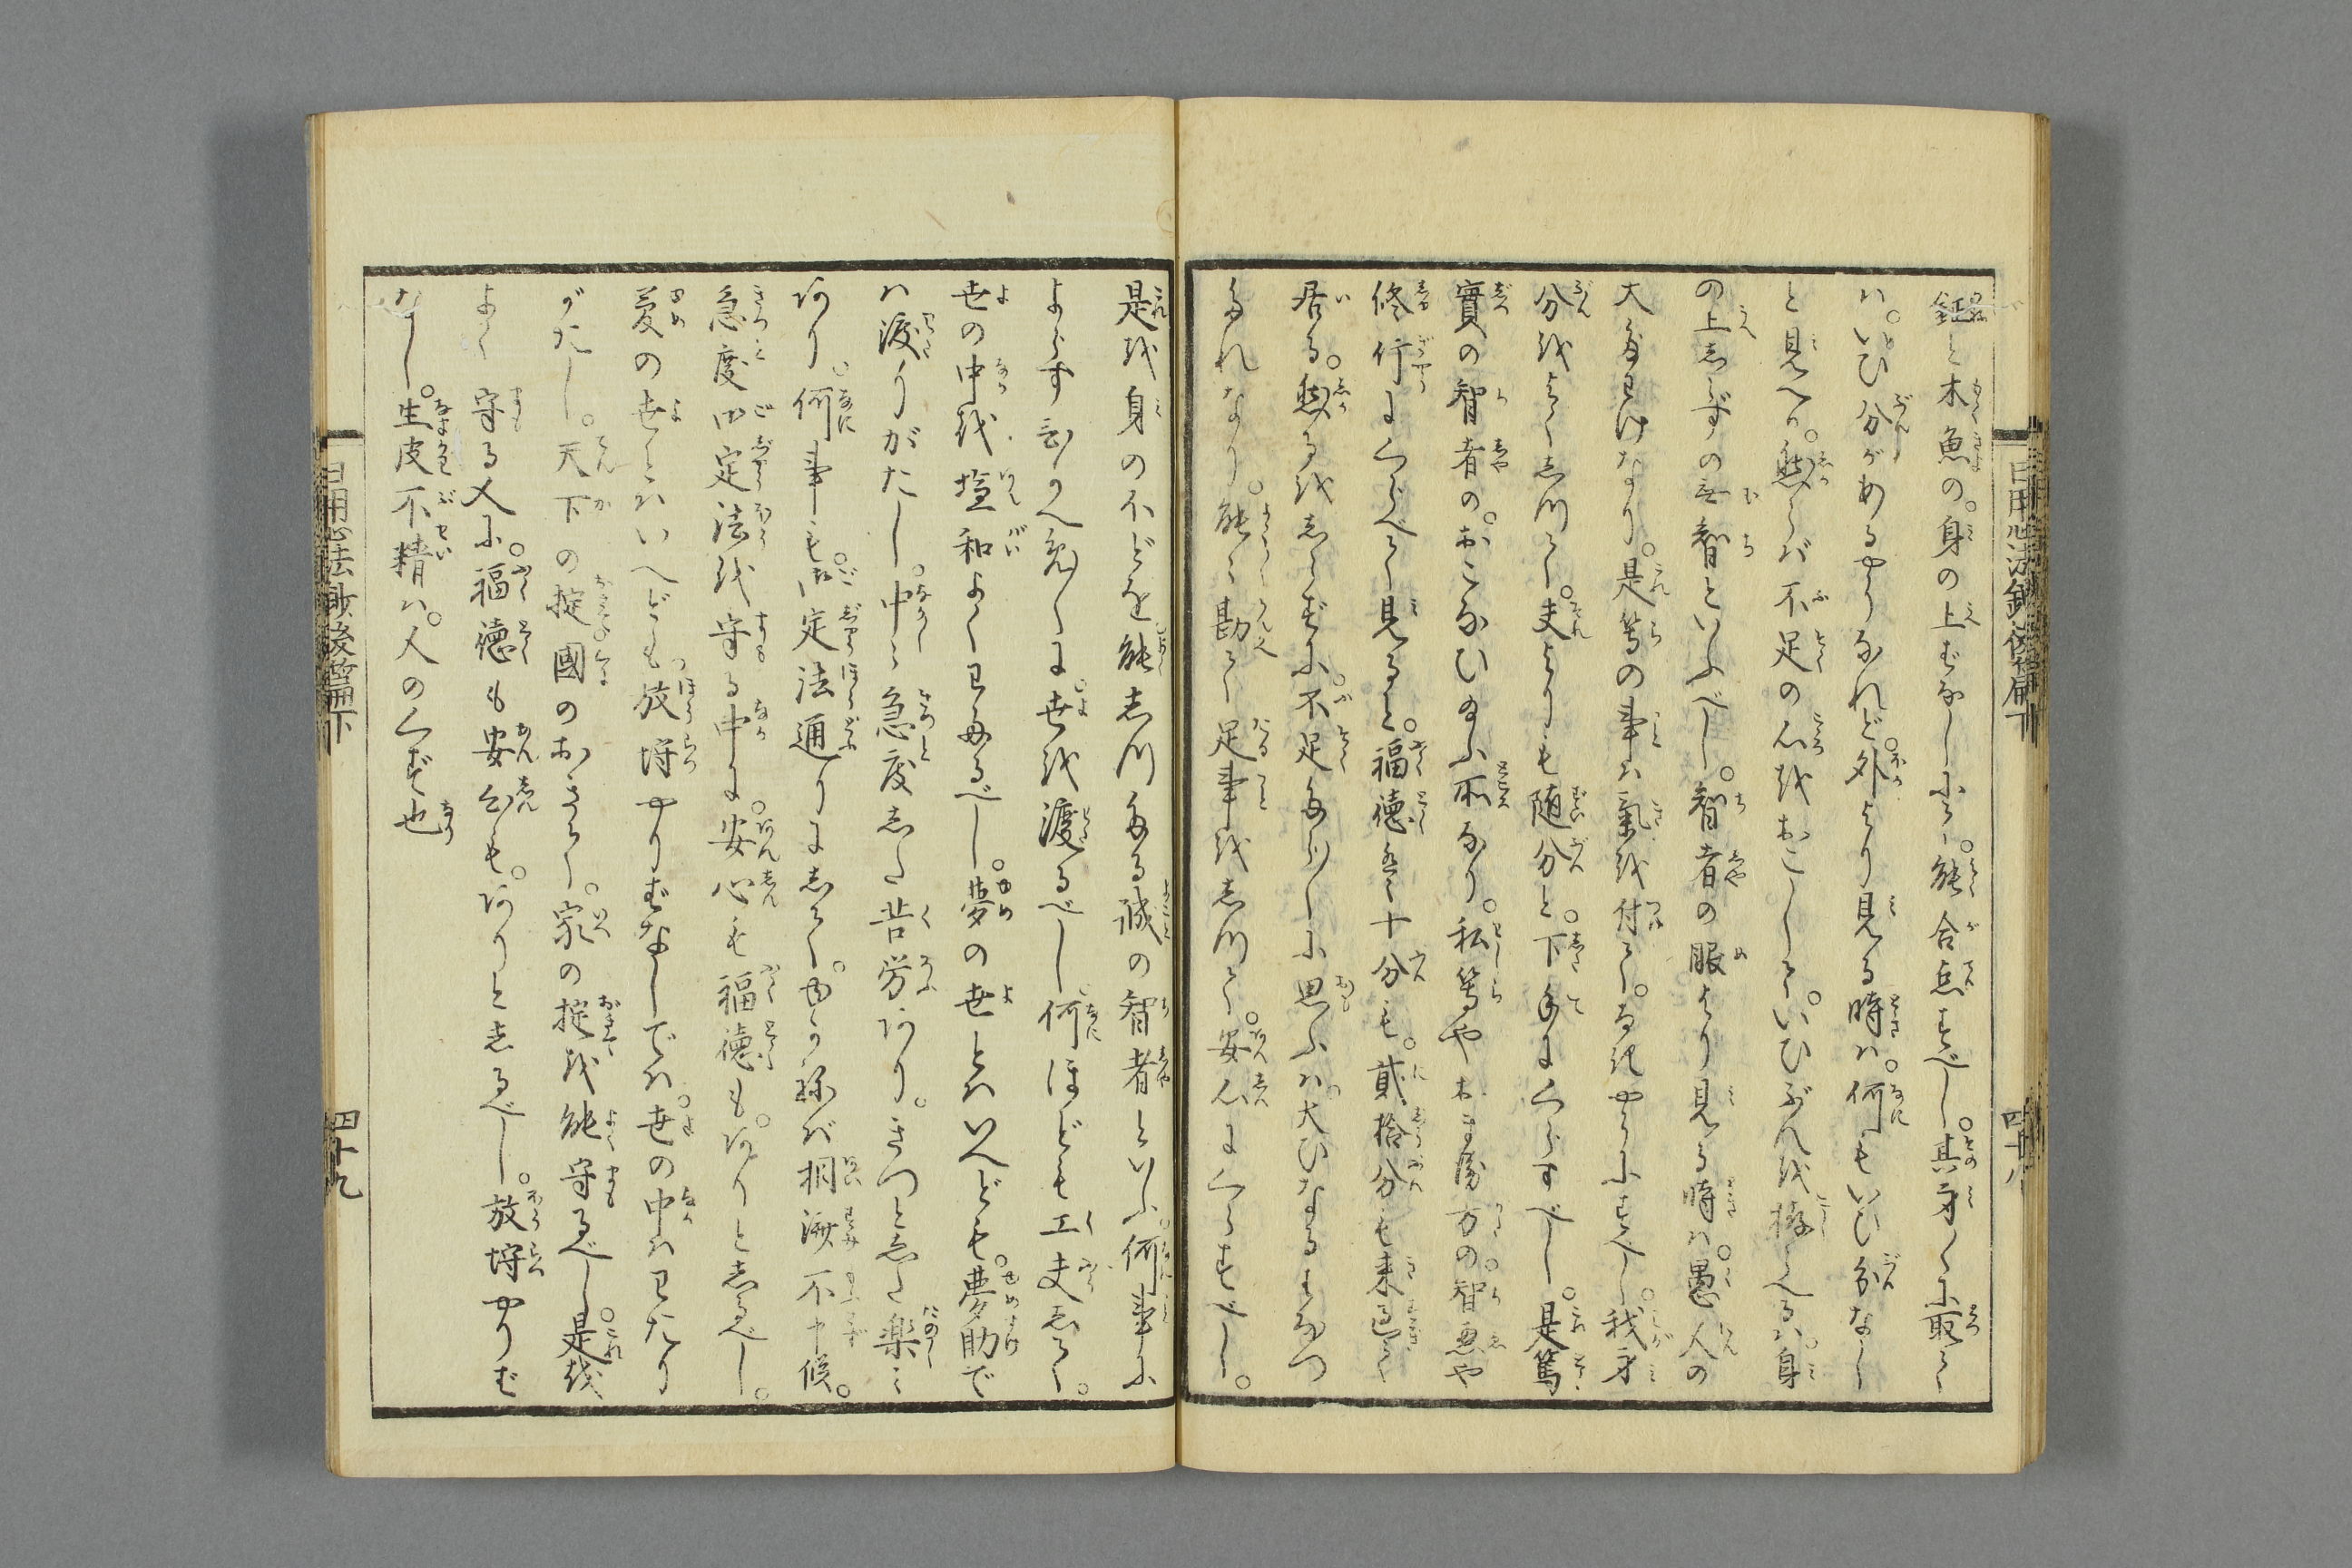 鉦と木魚の。身の上ばなしにて。能合点すべし。其身〳〵に取て
ハ。いひ分があるやうなれど。外より見る時ハ。何もいひ分なし
と見へる。然らバ不足の心をおこして。いひぶんを拵へるハ。身
の上しらずの無智といふべし。智者の眼より見る時ハ。愚人の
大たわけなり。是等の事ハ氣を付て。なきやうにすべし。我身
分をよくしつて。夫よりも随分と。下手にくらすべし。是篤
實の智者の。おこなひ給ふ所なり。私等やおまへ方の。智恵や
修行にくらべて見ると。福徳も十分も。貳拾分も来過て
居る。然るをしらずに。不足たらしに思ふハ。大ひなるまなつ
たれなり。能〳〵勘て足事をしつて。安心にくらすべし。
是を身のほどを能しつたる誠の智者といふ。何事に
よらず引かへ〳〵に。世を渡るべし。何ほども工夫して。
世の中を塩和よくわたるべし。夢の世とハいへども。夢助で
ハ渡りがたし。中〳〵急度した苦労あり。きつとした楽ミ
あり。何事も。御定法通りにして。ゆかねバ相濟不申候。
急度御定法を守る中に。安心も福徳も。ありとしるべし。
夢の世とハいへども。放埓やりばなしでハ。世の中ハわたり
がたし。天下の掟國のおきて。家の掟を能守るべし。是を
よく守る人に。福徳も安心も。ありとしるべし。放埓やりば
なし。生皮不精ハ。人のくず也
日用心法鈔後篇下
四十八
日用心法鈔後篇下
四十九